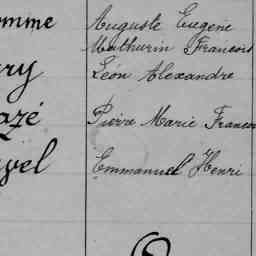 omme Auguste Eugène
Mathurin Francois
ry Léon Alexandre
azé Pierre Marie Francois
vel Emmanuel Henri